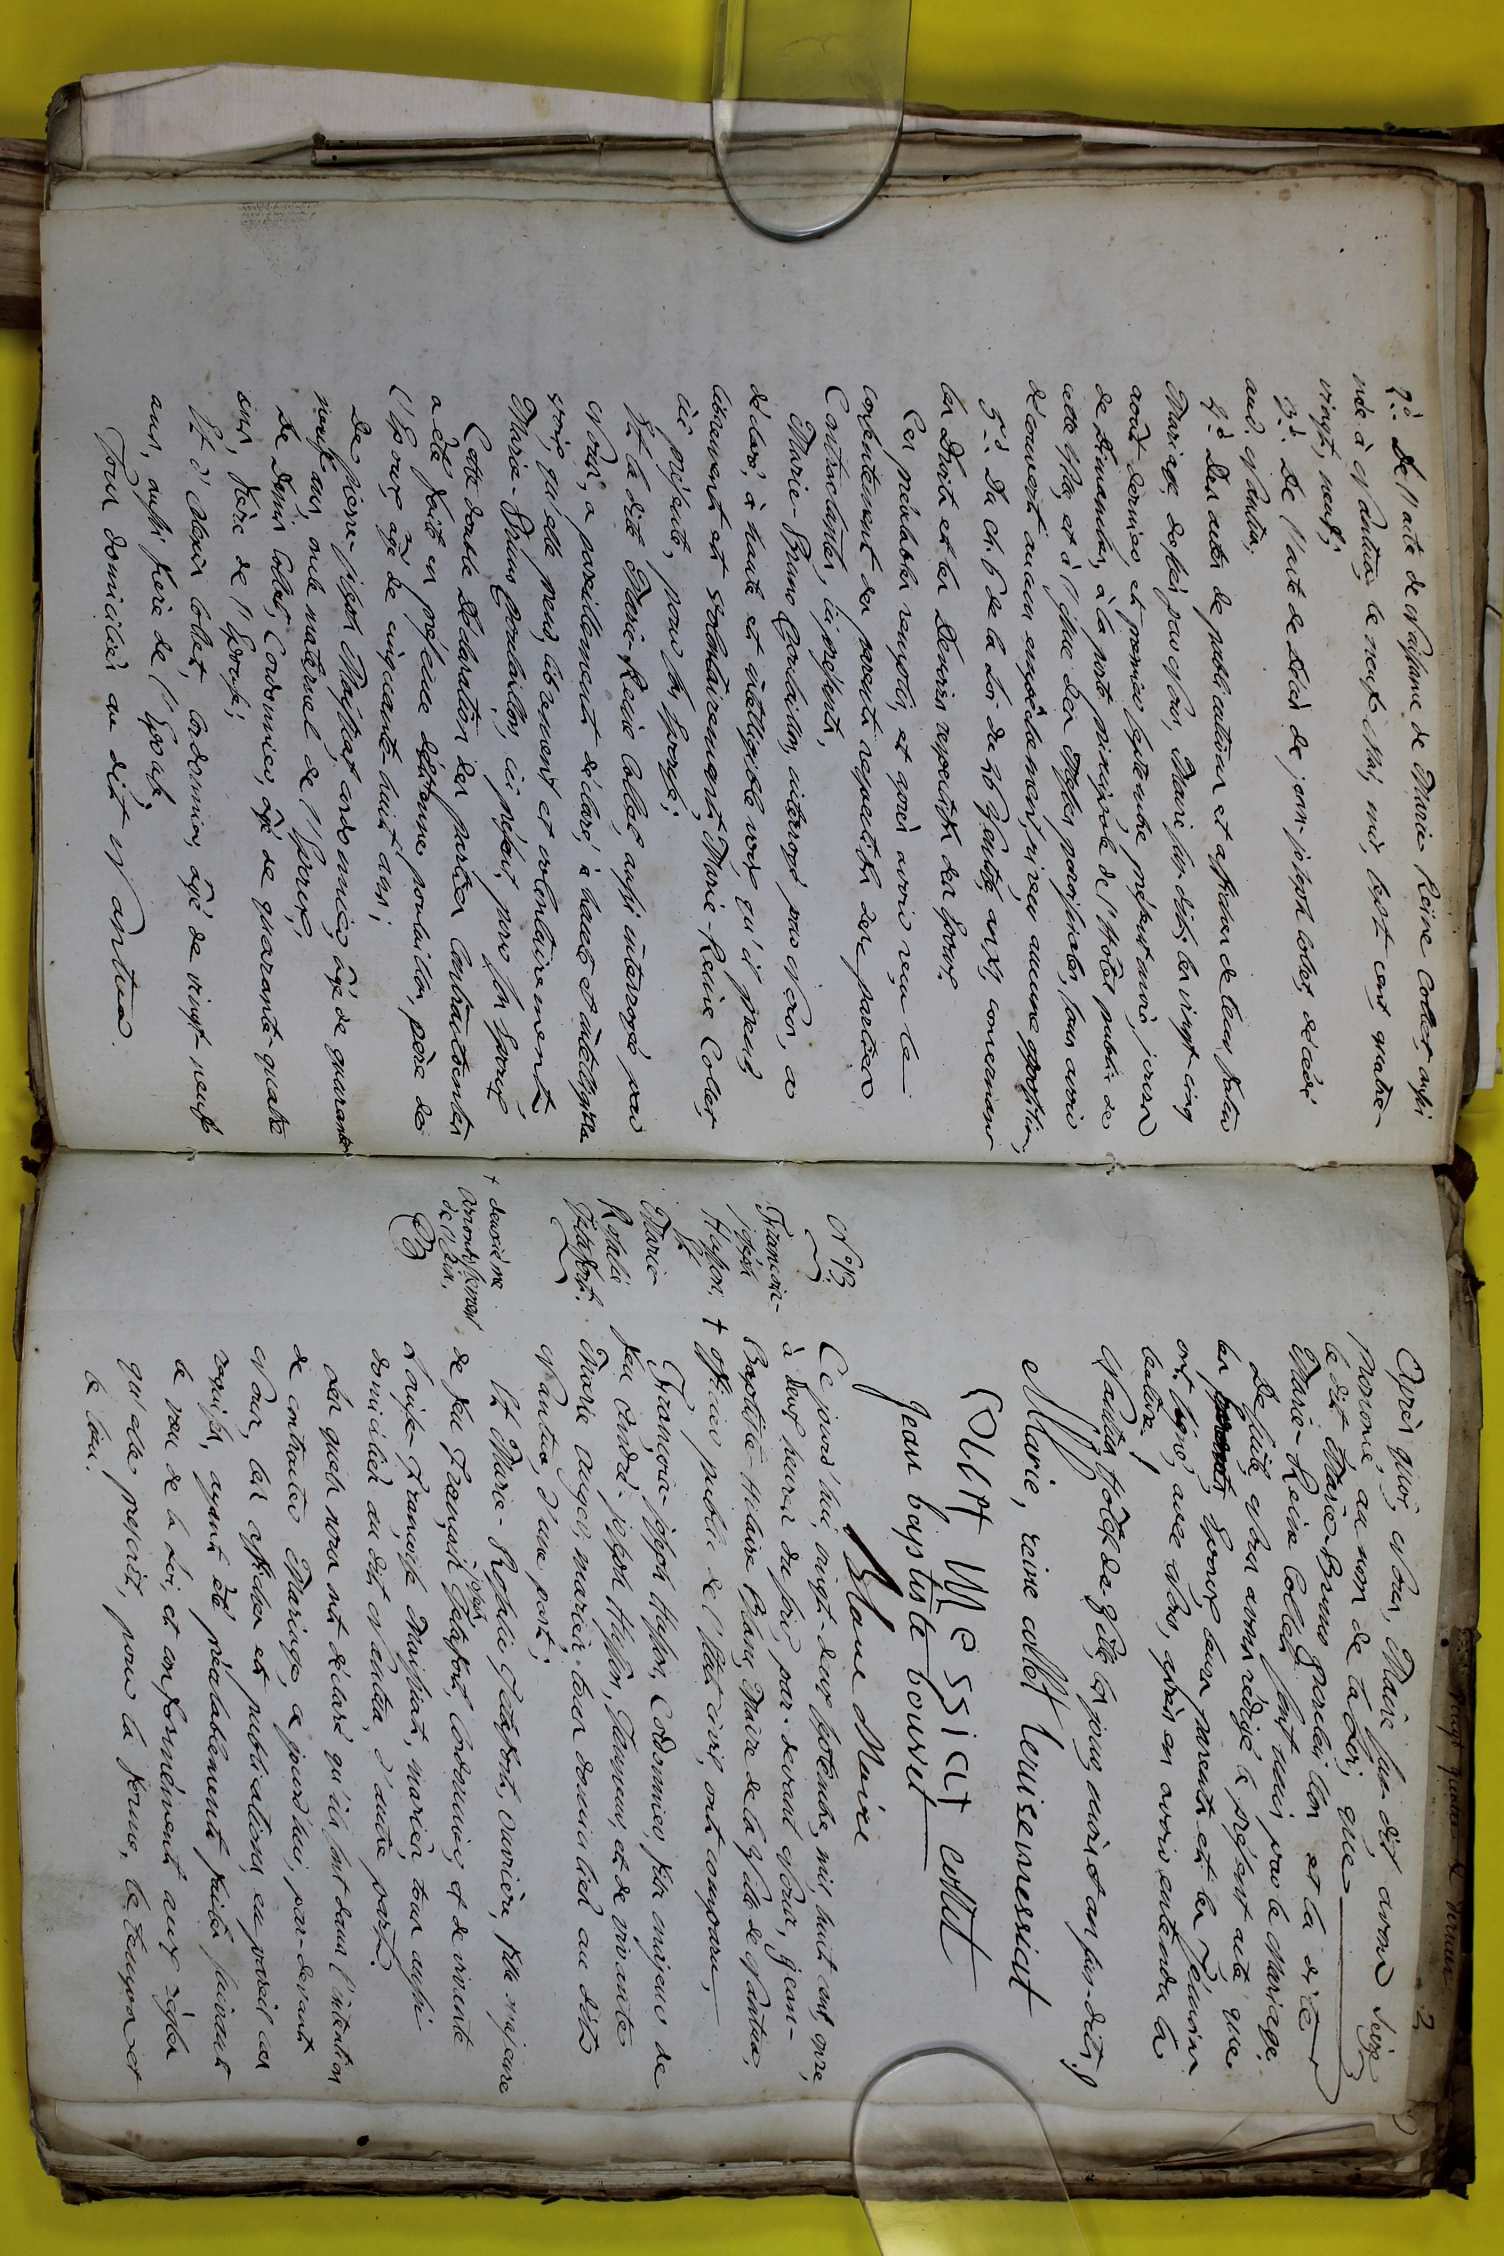 2.º De l'acte de Naissance de Marie Reine Collet, aussi
née à Nantua, le neuf Mai, mil sept cent quatre-
vingt, neuf;
3.º De l'acte de Décès de jean-joseph Collet, décédé
aud. Nantua,
4.º Des actes de publications et affiches de leur futur
Mariage, dressés par Nous, Maire sus-dit, les vingt-cinq
août dernier, et premier septembre présent mois, jours
de Dimanche, à la porte principale de l'Hôtel public de
cette Ville, et à l'issue des Messes paroissiales, sans avoir
découvert aucun empêchement, ni reçu aucune opposition,
5.º Du ch. 6 de la Loi du 26 Ventôse, an XI, concernant
les Droits et les Devoirs respectifs des Epoux,
Ces préalables remplis, et après avoir reçu le
consentement des parents respectifs des parties
Contractantes, ici présents,
Marie-Bruno Goncaillon, interrogé par Nous, a
déclaré, à haute et intelligible voix, qu'il prend
librement et volontairement Marie-Reine Collet,
ici présente, pour son Epouse;
Et la dite Marie-Reine Collet, aussi interrogée par
Nous, a pareillement déclaré, à haute et intelligible
voix, qu'elle prend, librement et volontairement
Marie-Bruno Goncaillon, ici présent, pour son Epoux,
Cette double Déclaration des parties Contractantes
a été faite en présence de père de
l'Epoux, agé de cinquante-huit ans;
De pierre-joseph cordonnier, âgé de quarante
neuf ans, oncle maternel de l'Epoux,
De Denis Collet, Cordonnier, âgé de quarante-quatre
ans, frère de l'Epouse;
Et d'Alexis Collet, cordonnier, âgé de vingt-neuf
ans, aussi frère de l'Epouse,
Tous domiciliés au dit Nantua.
2
Seize
Après quoi, Nous, Maire sus-dit avons
prononcé, au nom de la Loi, que
le dit Marie-Bruno et la dite
Marie-Reine Collet sont unis par le Mariage.
De suite, Nous avons rédigé le présent acte que
les Epoux, leurs parents et les Témoins
ont signé, avec Nous, après en avoir entendu la
lecture.
Nantua, Hôtel-de-Ville, les jour, mois et an sus-dits.
Marie, reine collet louise messiat
COLLET Messiat collet
jean baptiste
Blanc Maire
N.º 13.
François-
joseph
Husson,
Et
Marie
Rosalie
Jetafort.
Ce jourd'hui, vingt-deux septembre, mil huit cent, onze,
à neuf heures du soir, par-devant Nous, jean-
Baptiste-Hilaire Blanc, Maire de la Ville de Nantua,
+ officier public de l'Etat civil, ont comparu,
François-joseph Husson, Cordonnier, fils majeur de
feu André-joseph Husson, Tanneur, et de vivante
Marie Auger, mariés-tous domiciliés au dit
Nantua, d'une part;
Et Marie-Rosalie Jetafort, ouvrière, fille majeure
+ deuxième
arrondissement
de l'Ain,
de feu François joseph Jetafort, Cordonnier, et de vivante
Louise-Françoise Maissiat, mariés tous aussi
domiciliés au dit Nantua, d'autre part.
Les quels nous ont déclaré qu'ils sont dans l'intention
de contracter Mariage, ce jourd'hui, par-devant
Nous, les affiches et publications, en pareil cas
requises, ayant été préalablement faites, suivant
le vœu de la Loi, et conformément aux règles
qu'elle prescrit, pour la forme, le temps et
le lieu.